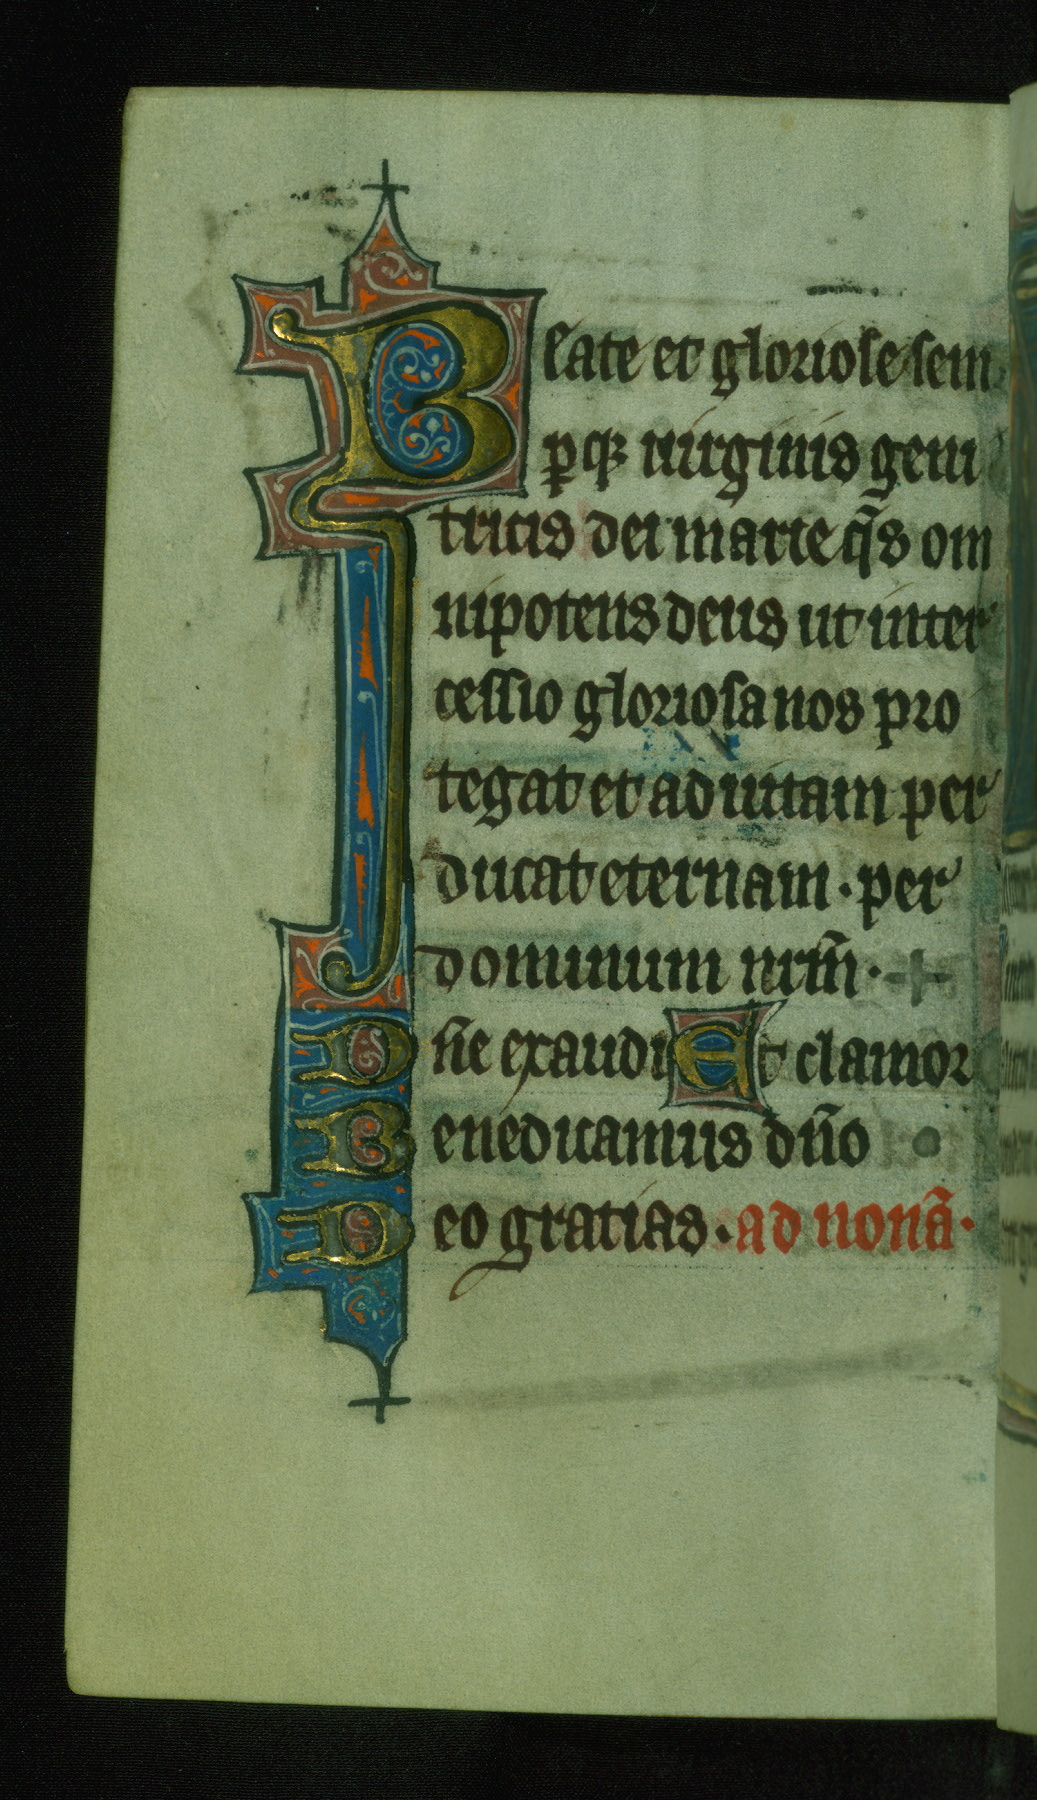 Beate et gloriose sem
ꝑqꝫ uirginis geni
tricis dei marie q̄s om
nipotens deus ut inter
cessio gloriosa nos pro
tegat et ad uitam per
ducat eternam · per
dominum nr̄m ·
Dn̄e exaudi Et clamor
Benedicamus dn̄o
Deo gratias · ad nonā ·